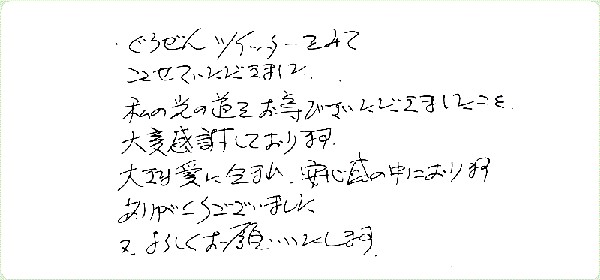 ・ぐうぜんツイッターをみて
こさせていただきました。
私の光の道をお導びきいただきましたことを、
大変感謝しております。
大きな愛に包まれ、安心感の中におります
ありがとうございました
又、よろしくお願いいたします。